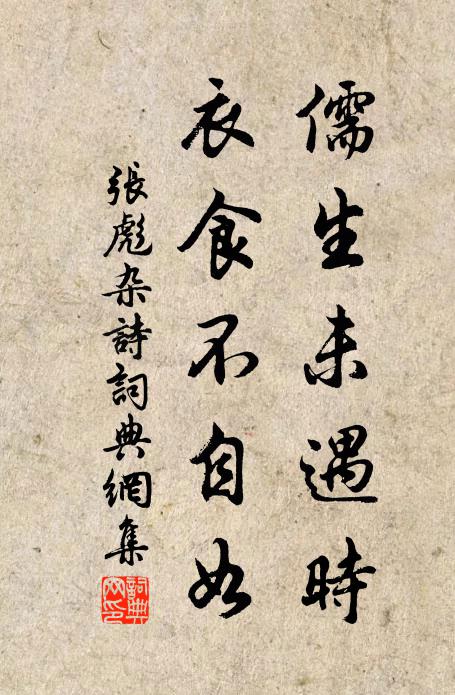 儒生未遇時
衣食不自如
張彪杂詩詞典網集
詞典
网印